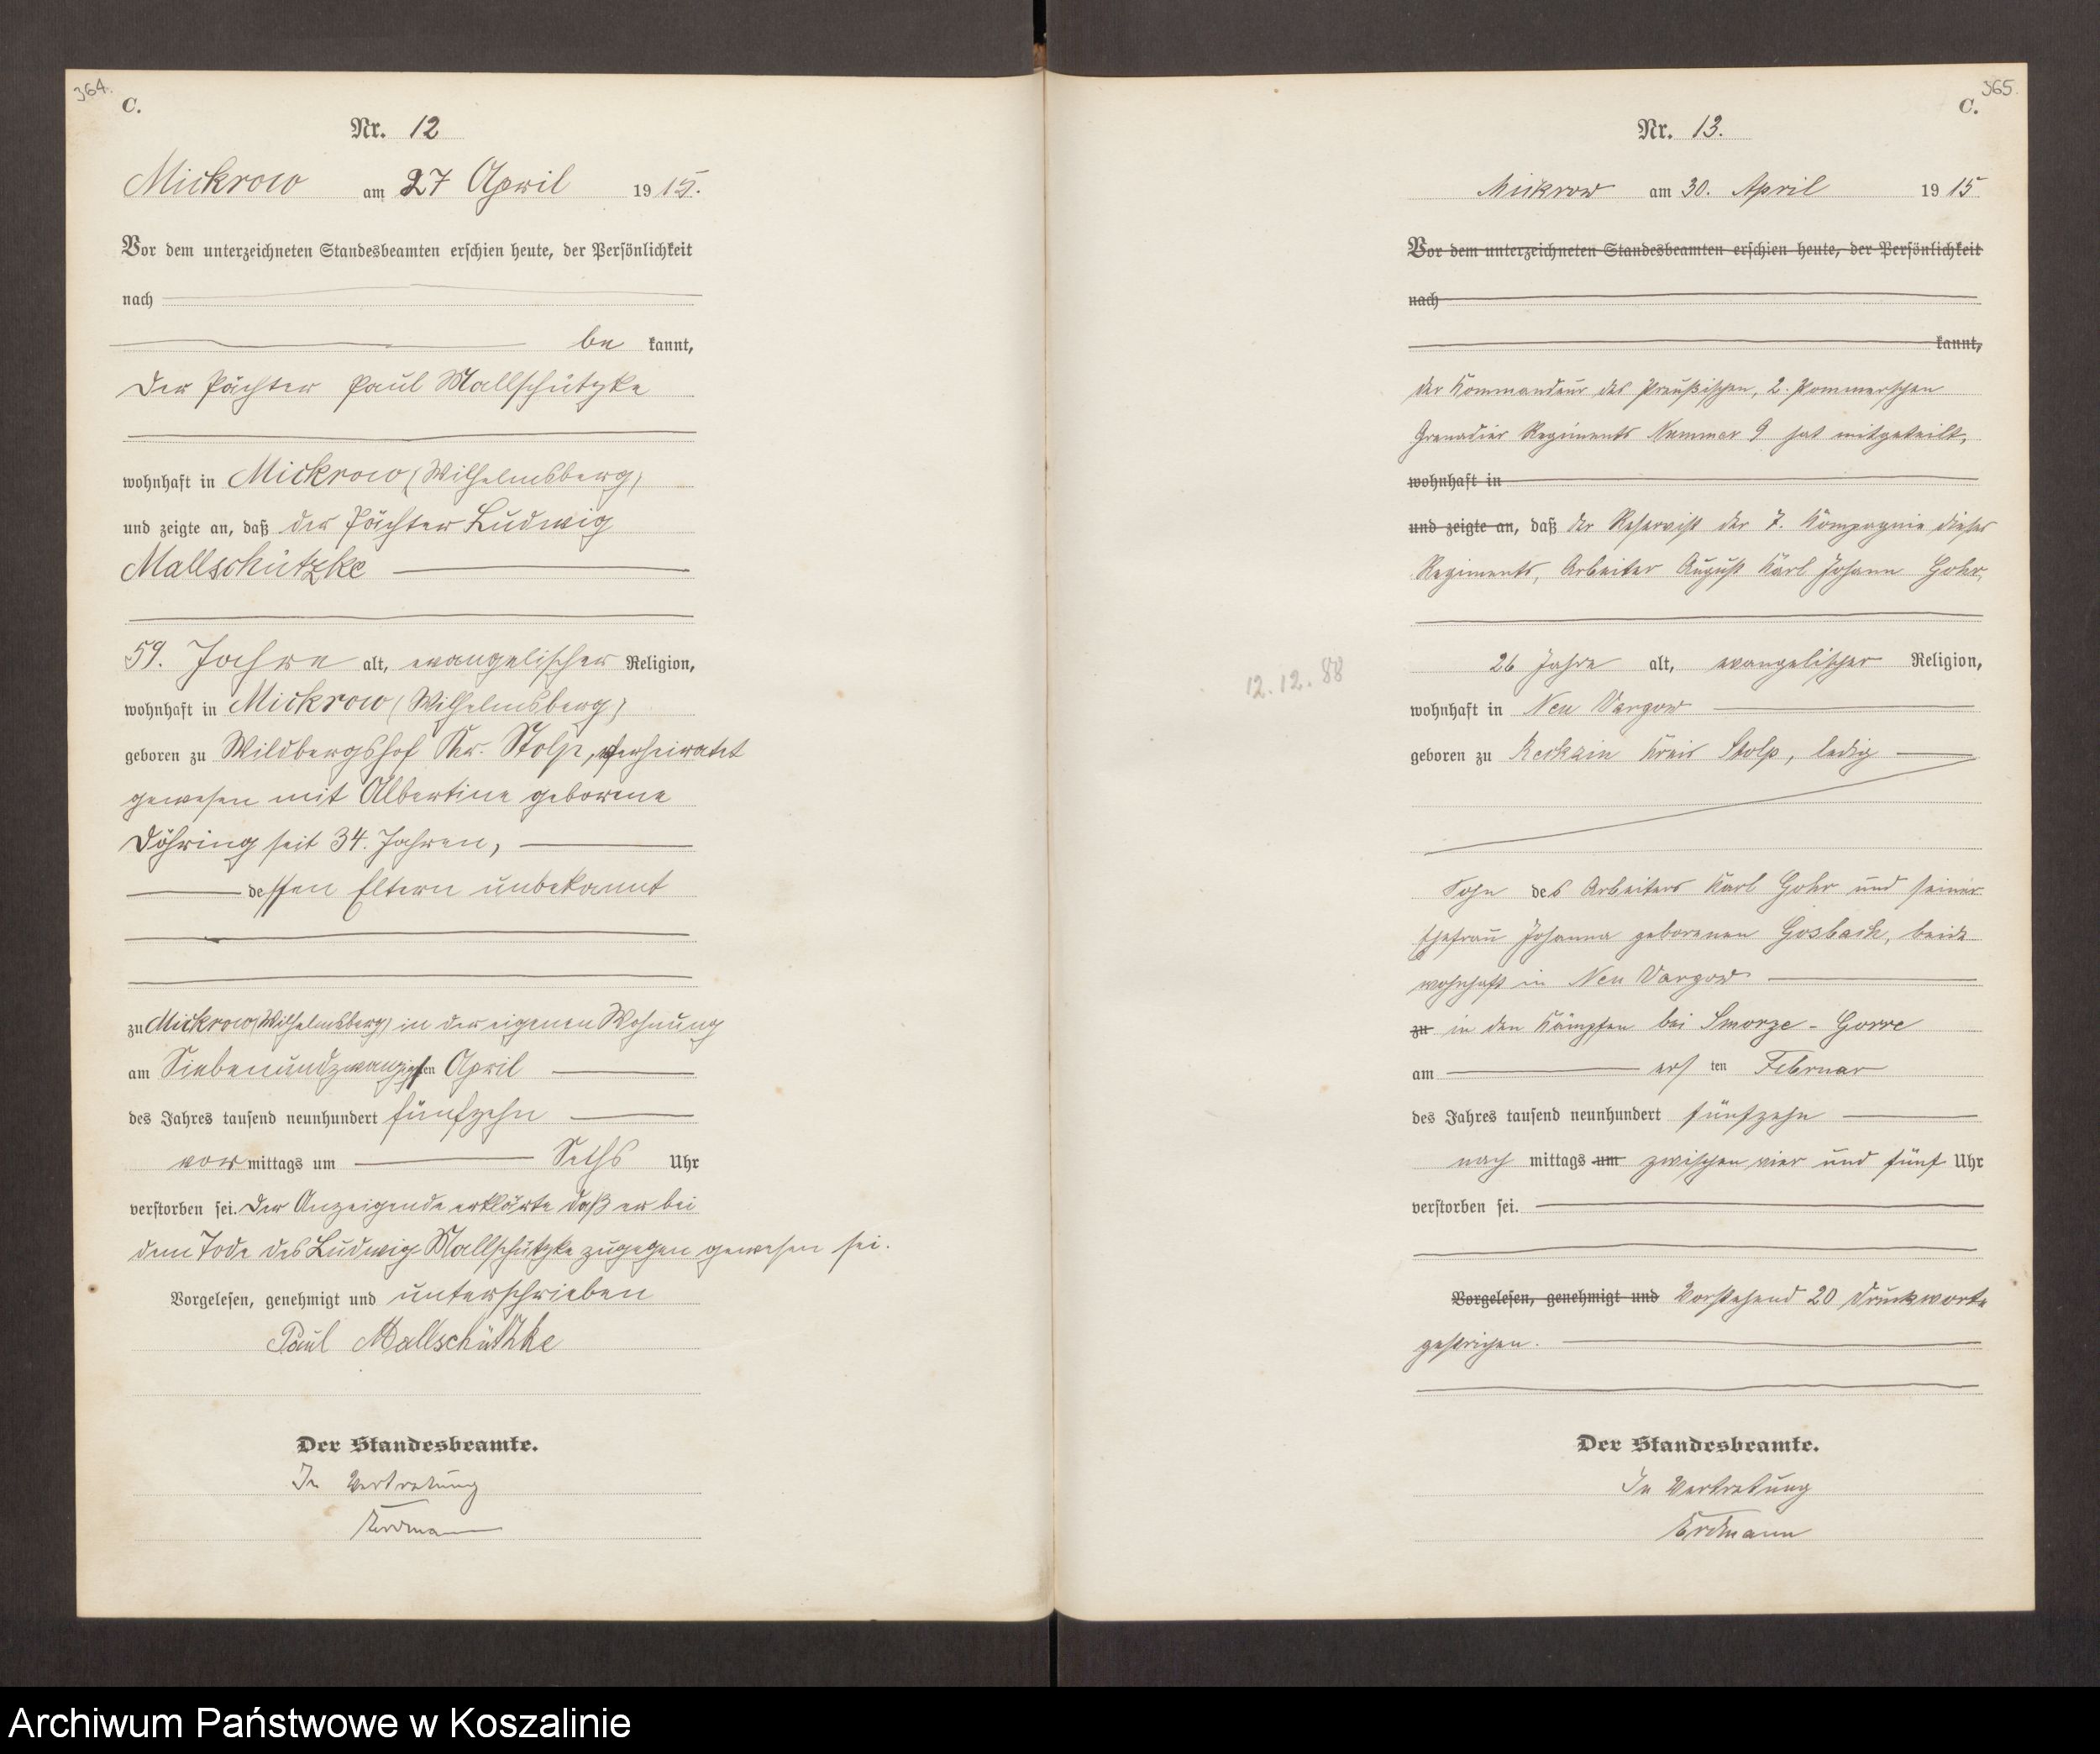 364.
C.
Nr. 12
Mickrow am 27 April 1915.
Vor dem unterzeichneten Standesbeamten erschien heute, der Persönlichkeit
nach
be kannt,
der Pächter Paul Mallschützke
wohnhaft in Mickrow (Wilhelmsberg)
und zeigte an, daß der Pächter Ludwig
Mallschützke
59. Jahre alt, evangelischer Religion,
wohnhaft in Mickrow (Wilhelmsberg)
geboren zu Wildbergshof Kr. Stolp, verheiratet
gewesen mit Albertine geborene
Döhring seit 34. Jahren,
dessen Eltern unbekannt
zu Mickrow (Wilhelmsberg) in der eigenen Wohnung
am Siebenundzwanzigsten April
des Jahres tausend neunhundert fünfzehn
vor mittags um Sechs Uhr
verstorben sei. Der Anzeigende erklärte daß er bei
dem Tode des Ludwig Mallschützke zugegen gewesen sei.
Vorgelesen, genehmigt und unterschrieben
Paul Mallschützke
Der Standesbeamte.
In Vertretung
Erdmann
365.
C.
Nr. 13.
Mickrow am 30. April 1915
Vor dem unterzeichneten Standesbeamten erschien heute, der Persönlichkeit
nach
kannt,
der Kommandeur des Preußischen, 2. Pommerschen
Grenadier Regiments Nummer 9 hat mitgeteilt,
wohnhaft in
und zeigte an, daß der Reservist der 7. Kompagnie dieses
Regiments, Arbeiter August Karl Johann Gohr,
12.12.88
26 Jahre alt, evangelischer Religion,
wohnhaft in Neu Vargow
geboren zu Kreis Stolp, ledig
Sohn des Arbeiters Karl Gohr und seiner
Ehefrau Johanna geborenen Gosbach, beide
wohnhaft in Neu Vargow
zu in den Kämpfen bei Smorze - Gorre
am ers ten Februar
des Jahres tausend neunhundert fünfzehn
nach mittags um zwischen vier und fünf Uhr
verstorben sei.
Vorgelesen, genehmigt und Vorstehend 20 Druckworte
gestrichen.
Der Standesbeamte.
In Vertretung
Erdmann
Archiwum Państwowe w Koszalinie